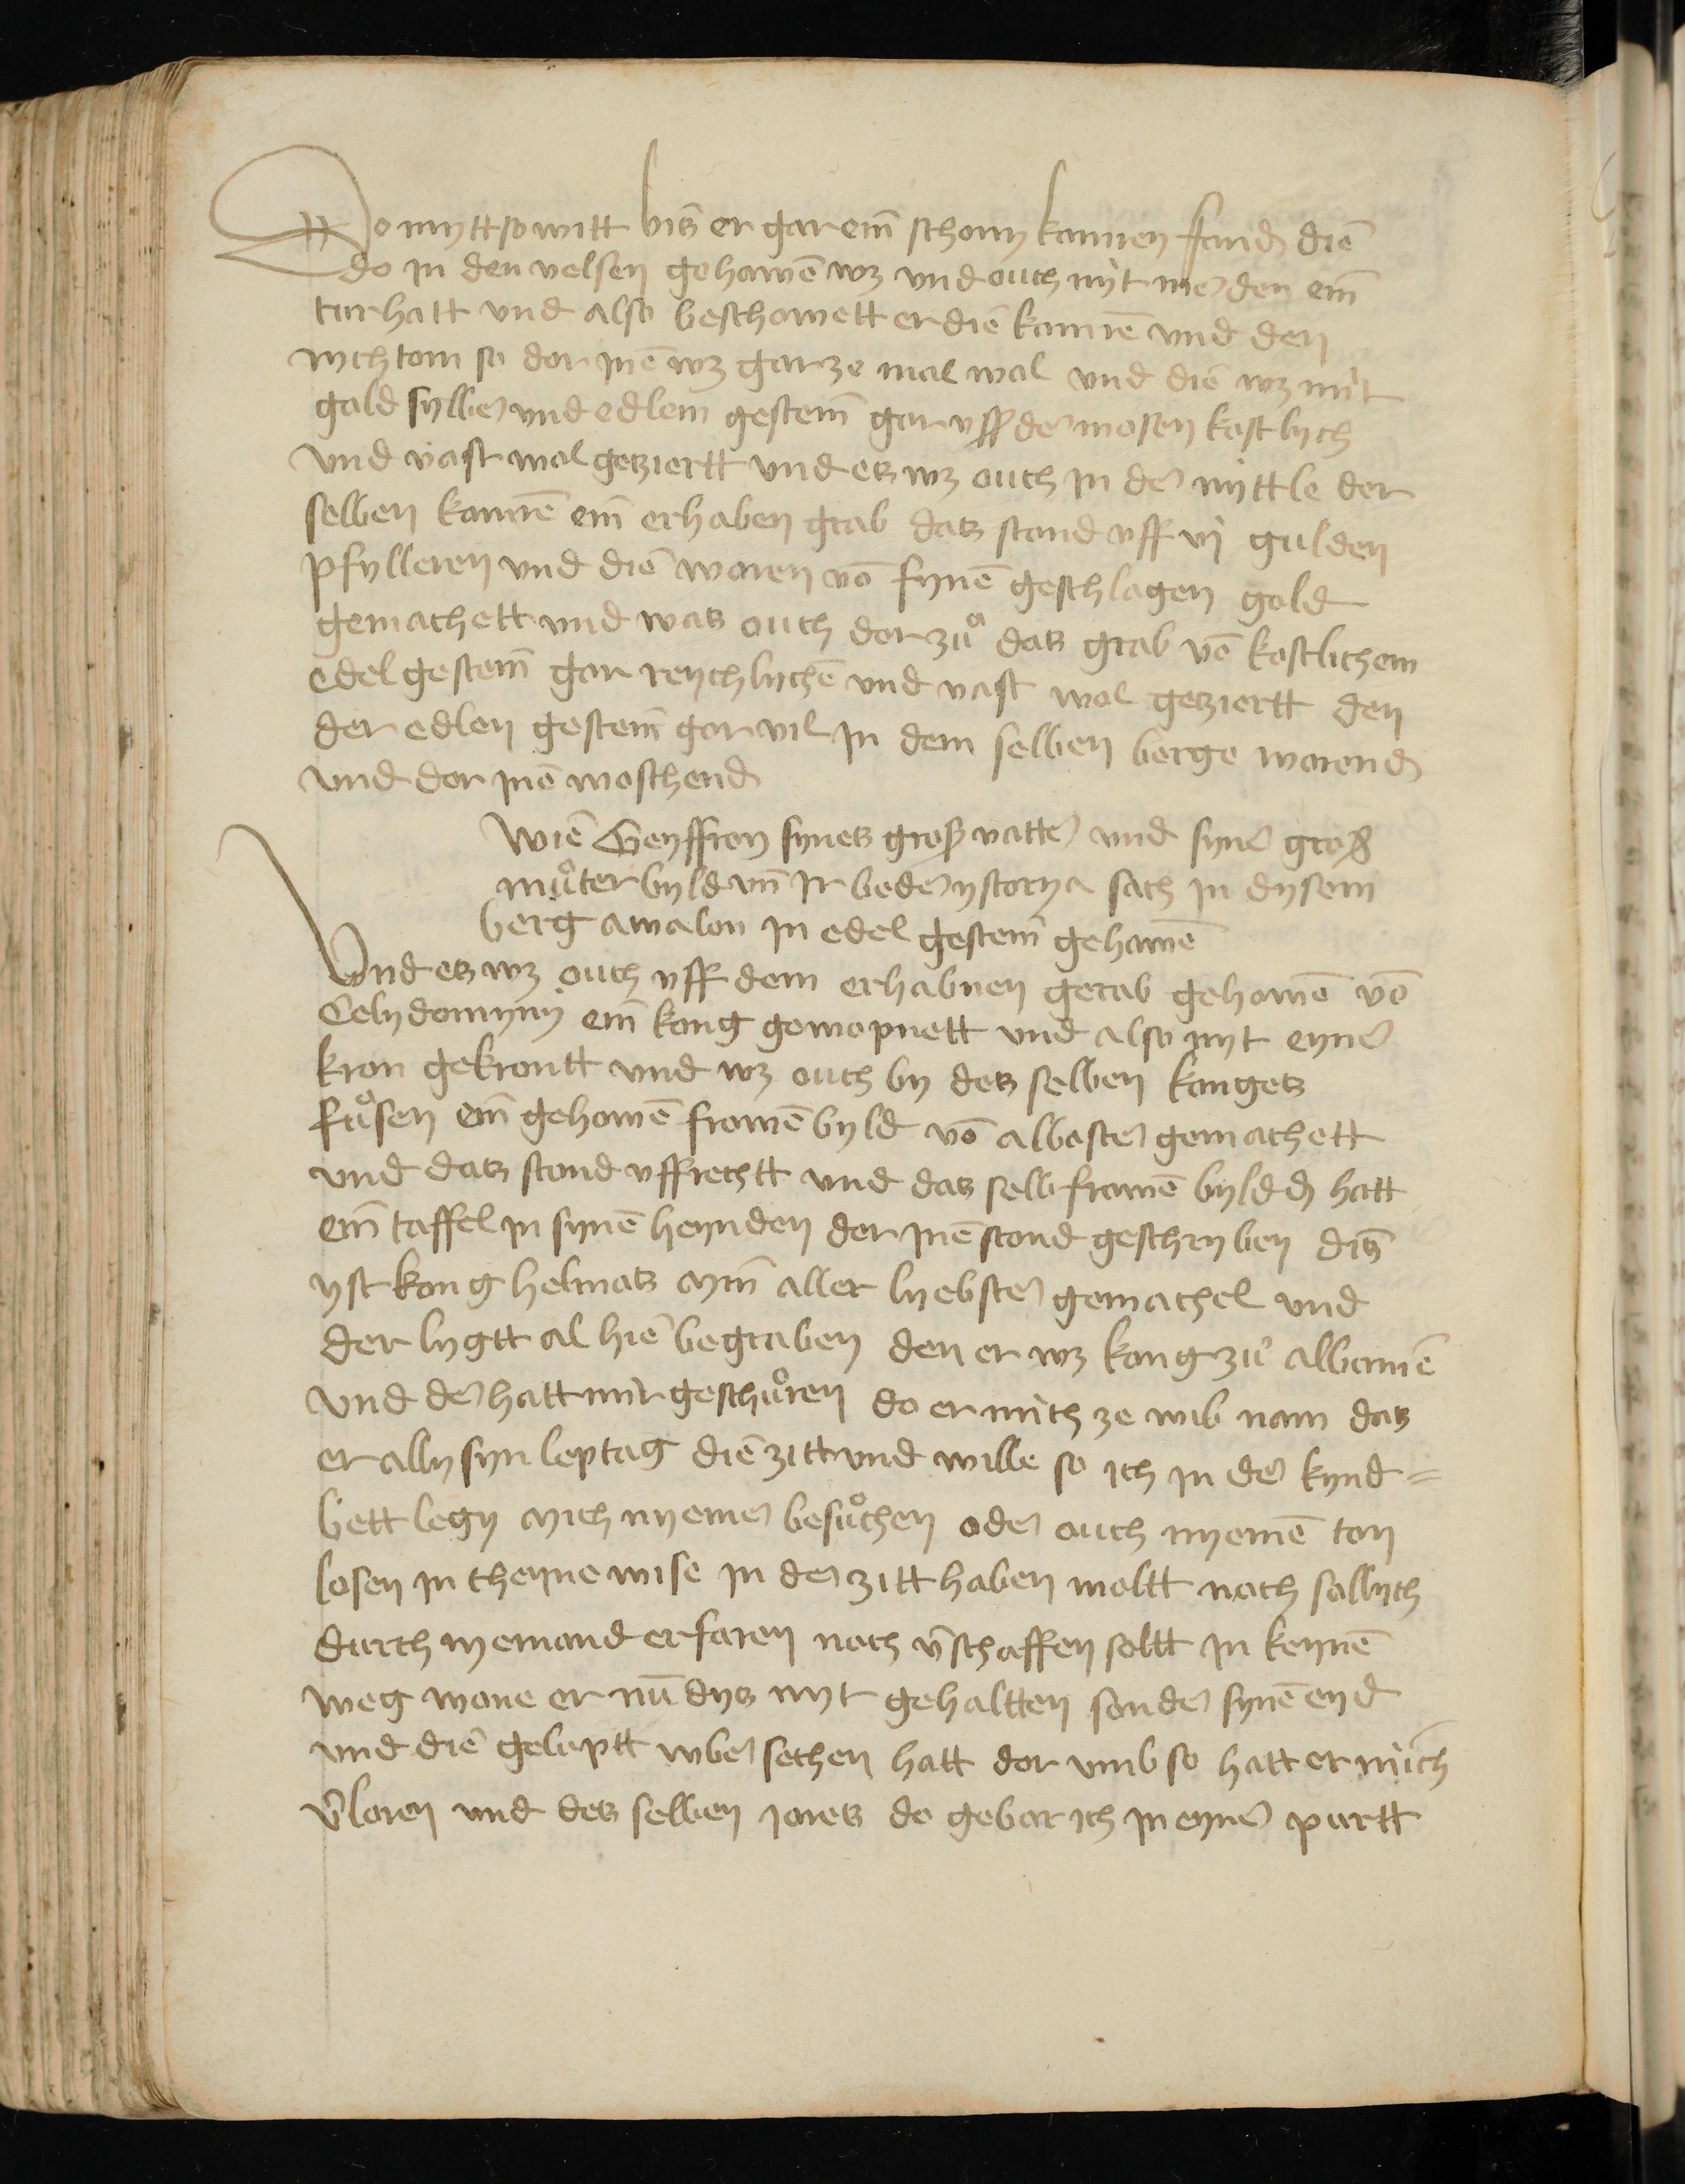 Do mytt so witt bis er gar ein̄ schony kamen fand die
do in den velsen gehawē wz vnd ouch nit me den ein̄
tur hatt vnd also beschowett er die kamē vnd den
rychtom so dor jnē wz gar ze mal wol vnd die wz mit
gald sylber vnd edlem gestein̄ gar vss der mosen kostlych
vnd vast wol getziertt vnd ets wz ouch jn der myttle der
selben kamē ein̄ erhaben grab dats stand vff vj gulden
pfylleren vnd die woren vō fynē geschlagen gold
gemachett vnd wats ouch dor zů dats grab vō kostlichem
edel gestein̄ gar reychlychē vnd vast wol getziertt den
der edlen gestein̄ gar vil jn dem selben berge worend
vnd dor jnē woschend
Wie Geyffroy synets gros vatter vnd syner gros
můter byld vn̄ jr beder ystorya sach jn dysem
berg awalon jn edel gestein̄ gehawē
Vnd ets wz ouch vff dem erhabnen gerab gehowē vō
Celydomyny ein̄ kong gewopnett vnd also myt eyner
kron gekrontt vnd wz ouch by dets selben konges
fůsen ein̄ gehowē frowē byld vō alboster gemachett
vnd dats stond vffrechtt vnd dats selb frowē byld d hatt
ein̄ taffel jn synē heynden dor jnē stond geschryben dis
yst kong helmats myn̄ aller lyebster gemachel vnd
der lygtt al hie begraben den er wz kong zů albanie
vnd der hatt mir geschůren do er mich ze wib nam dats
er ally syn leptag die zitt vnd wille so ich jn der kynd=
bett legy mich nyemer besůchen oder ouch nyemē ton
losen jn cheyne wise jn der zitt haben woltt noch sollych
durch nyemand erfaren noch v̄schaffen soltt jn keynē
weg wone er nū dys nyt gehaltten sonder synē eyd
vnd die geluptt wber sechen hatt dor vmb so hatt er mich
v̄loren vnd dets selben jorets do gebar ich jn eyner purtt